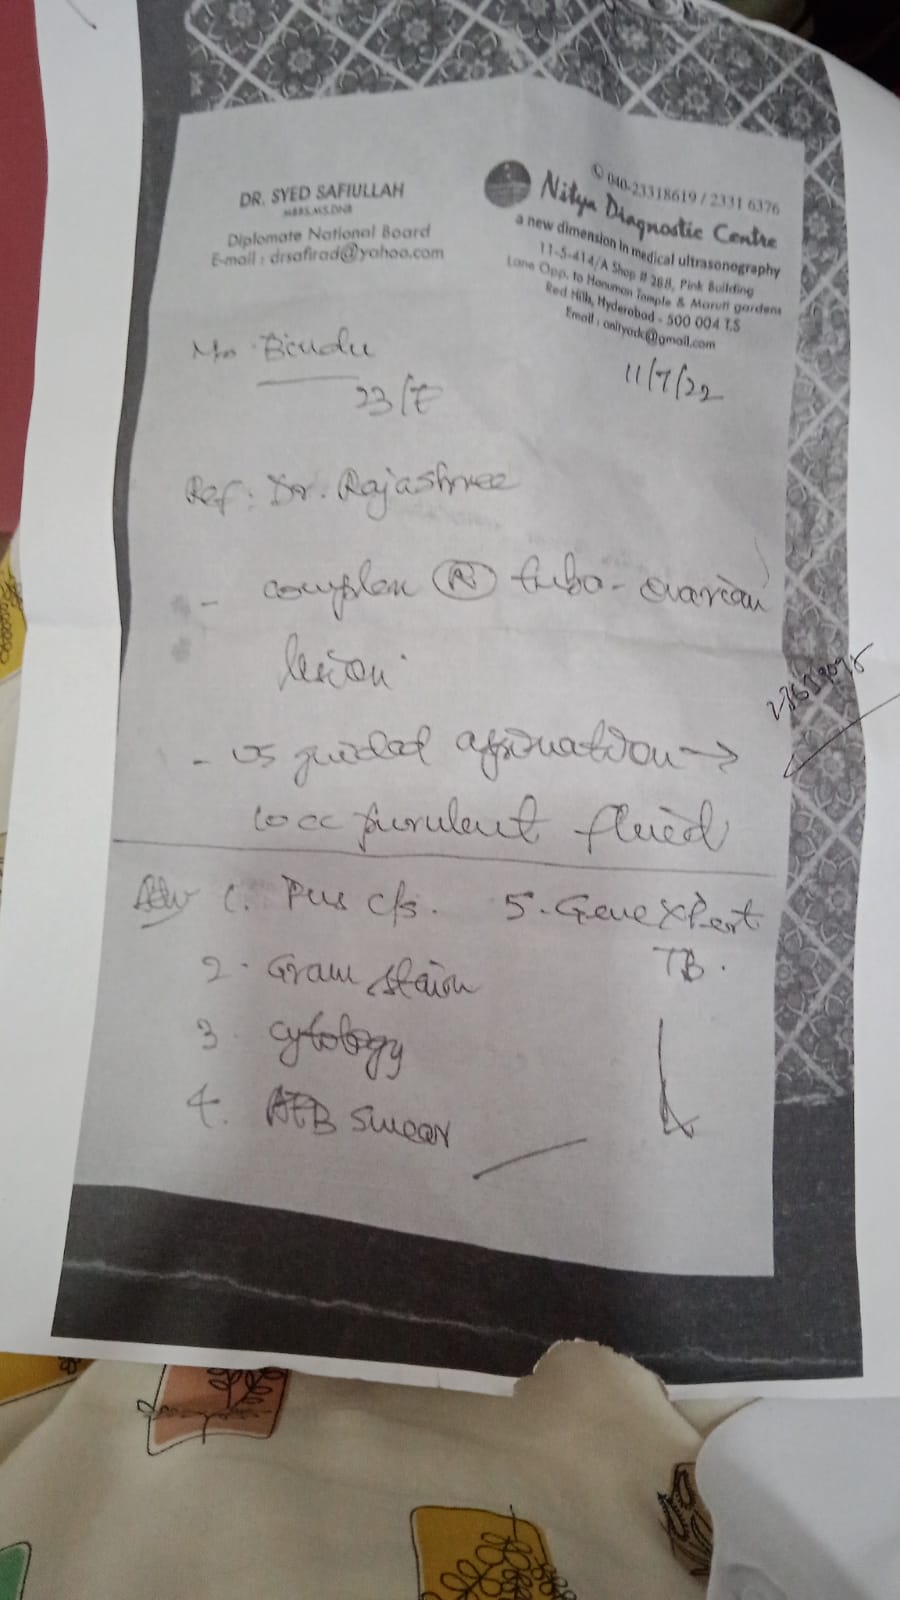 DR. SYED SAFIULLAH
MBBS,MS,DNB
Diplomate National Board
E-mail : drsafirad@yahoo.com
040-23318619 / 2331 6376
Nitya Diagnostic Centre
a new dimension in medical ultrasonography
11-5-414/A Shop # 288, Pink Building
Lane Opp. to Hanuman Temple & Maruti gardens
Red Hills, Hyderabad - 500 004 T.S
Email : @gmail.com
Bindu
23/F
11/7/22
Ref: Dr. Rajashree
- complex (R) tubo-ovarian
lesion.
- US guided aspiration →
10cc purulent fluid
Adv 1. Pus c/s. 5. GeneXpert
TB.
2. Gram stain
3. cytology
4. AFB smear